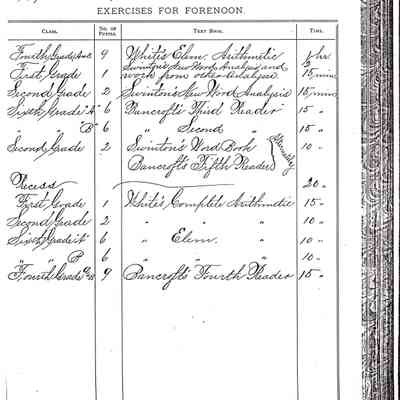 EXERCISES FOR FORENOON.
CLASS. NO. OF PUPILS. TEXT BOOK. TIME.
Fourth Grade A&B 9 White's Elem. Arithmetic ½ hr.
First Grade 1 Swinton's New Word Analysis and work from other Analysis 15 min
Second Grade 2 Swinton's New Word Analysis 15 min
Sixth Grade "A" 6 Bancroft's Third Reader 15 "
" "B" 6 " Second " 15 "
Second Grade 2 Swinton's Word Book 10 "
Bancroft's Fifth Reader
Recess 20 "
First Grade 1 White's Complete Arithmetic 15 "
Second Grade 2 " " " 10 "
Sixth Grade A 6 " Elem. " 10 "
" " B 6 " " 10 "
Fourth Grade 9 Bancroft's Fourth Reader 15 "